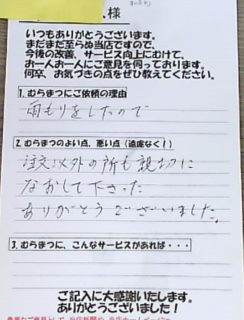 様
いつもありがとうございます。
まだまだ至らぬ当店ですので、
今後の改善、サービス向上にむけて、
お一人お一人にご意見を伺っております。
何卒、お気づきの点をぜひ教えてください。
1.むらまつにご依頼の理由
雨もりをしたので
2.むらまつのよい点、悪い点（遠慮なく！）
注文以外の所も親切に
なおして下さった
ありがとうございました。
3.むらまつに、こんなサービスがあれば・・・
ご記入に大感謝いたします。
ありがとうございました！